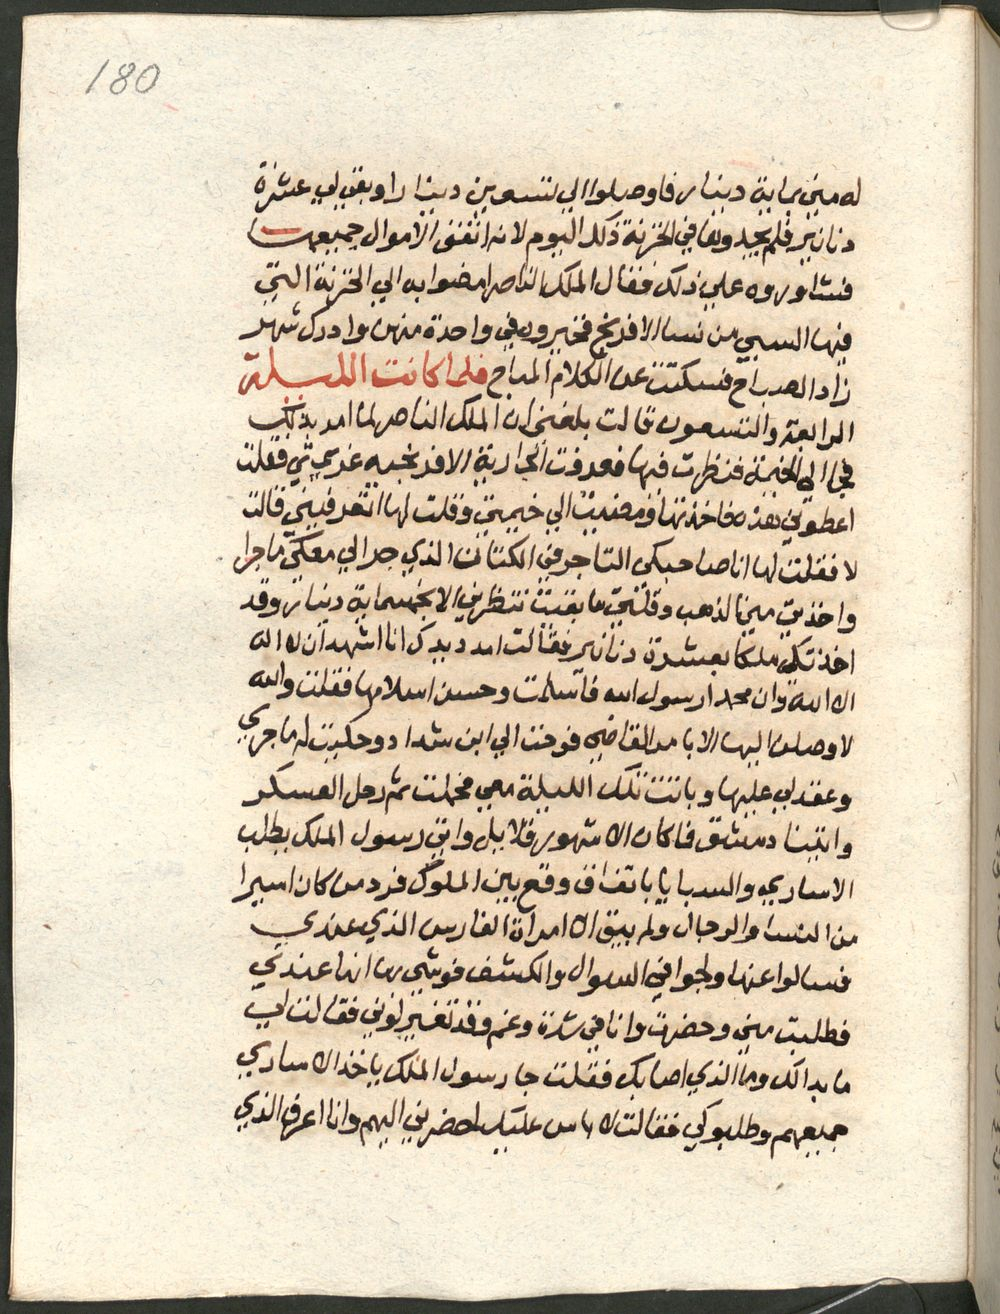 180
له مني بماية دينار فاوصلوا الي تسعين دينارا وبقي لي عشرة
دنانير فلم يجدوها في الخزنة ذلك اليوم لانه انفق الاموال جميعها
فشاوروه علي ذلك فقال الملك الناصر امضوا به الي الخزنة التي
فيها السبي من نسا الافرنج فخيروه في واحدة منهن وادرك شهر
زاد الصباح فسكتت عن الكلام المباح فلما كانت الليلة
الرابعة والتسعون قالت بلغني ان الملك الناصر لما امر بذلك
في الي الخيمة فنظرت فيها فعرفت الجارية الافرنجيه غريمتي فقلت
اعطوني هذه فاخذتها ومضيت الي خيمتي وقلت لها اتعرفيني قالت
لا فقلت لها انا صاحبكي التاجر في الكتان الذي جرا لي معكي ما جرا
واخذتي مني الذهب وقلتي ما بقيت تنظرني الا بخمسماية دينار وقد
اخذتكي ملكا بعشرة دنانير فقالت امدد يدك انا اشهد ان لا اله
الا الله وان محمدا رسول الله فاسلمت وحسن اسلامها فقلت والله
لا وصلت اليها الا بامر القاضي فرحت الي ابن شداد وحكيت له ما جري
وعقد لي عليها وباتت تلك الليلة معي فحملت ثم رحل العسكر
واتينا دمشق فما كان الا شهور قلايل واتي رسول الملك يطلب
الاساري والسبايا باتفاق وقع بين الملوك فرد من كان اسيرا
من النسا والرجال ولم يبق الا امراة الفارس الذي عندي
فسالوا عنها ولحوا في السوال والكشف فوشي بها انها عندي
فطلبت مني وحضرت وانا في شدة وغم وقد تغير لوني فقالت لي
ما بدالك وما الذي اصابك فقلت جا رسول الملك ياخذ الاساري
جميعهم وطلبوكي فقالت لا باس عليك احضرني اليهم وانا اعرف الذي